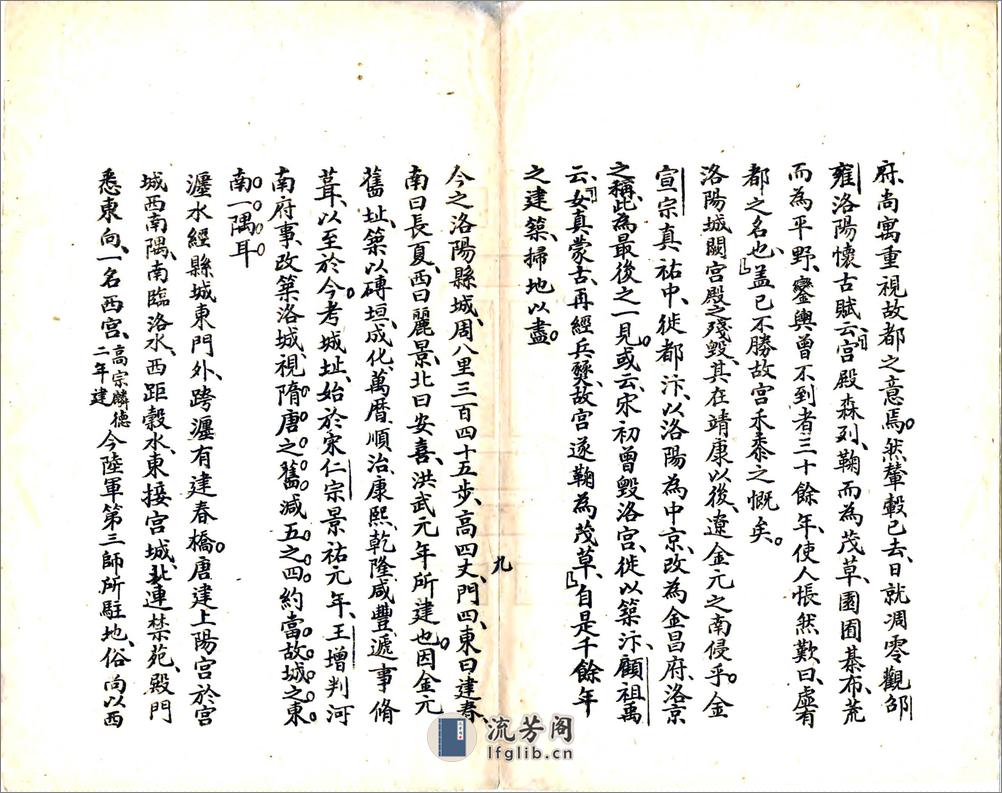 府、尚寓重視故都之意焉。然輦轂已去、日就凋零、觀邵
雍洛陽懷古賦云、「宮殿森列、鞠而為茂草、園囿棊布、荒
而為平野、鑾輿曾不到者三十餘年、使人悵然歎曰、虛有
都之名也」、盖已不勝故宮禾黍之慨矣。
洛陽城闕宮殿之殘毀、其在靖康以後、遼金元之南侵乎。金
宣宗真祐中、徙都汴、以洛陽為中京、改為金昌府、洛京
之稱、此為最後之一見。或云、宋初曾毀洛宮、徙以築汴、顧祖禹
云、「女真蒙古、再經兵燹、故宮遂鞠為茂草」、自是千餘年
之建築、掃地以盡。
九
今之洛陽縣城、周八里三百四十五步、高四丈、門四、東曰建春、
南曰長夏、西曰麗景、北曰安喜、洪武元年所建也。因金元
舊址、築以磚垣、成化、萬曆、順治、康熙、乾隆、咸豐、遞事脩
葺、以至於今。考城址、始於宋仁宗景祐元年、王增判河
南府事、改築洛城、視隋唐之舊減五之四、約當故城之東
南一隅耳
瀍水經縣城東門外、跨瀍有建春橋。唐建上陽宮於宮
城西南隅、南臨洛水、西距穀水、東接宮城、北連禁苑、殿門
悉東向、一名西宮、高宗麟德二年建 今陸軍第三師所駐地、俗尚以西
流芳阁
lfglib.cn